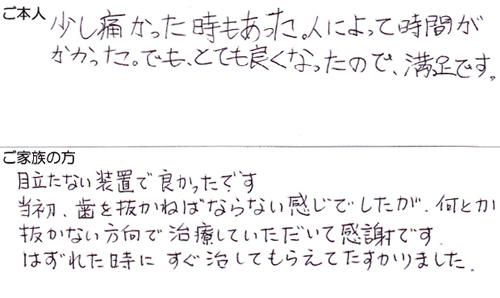 ご本人
少し痛かった時もあった。人によって時間が
かかった。でも、とても良くなったので、満足です。
ご家族の方
目立たない装置で良かったです
当初、歯を抜かねばならない感じでしたが、何とか
抜かない方向で治療していただいて感謝です。
はずれた時にすぐ治してもらえてたすかりました。